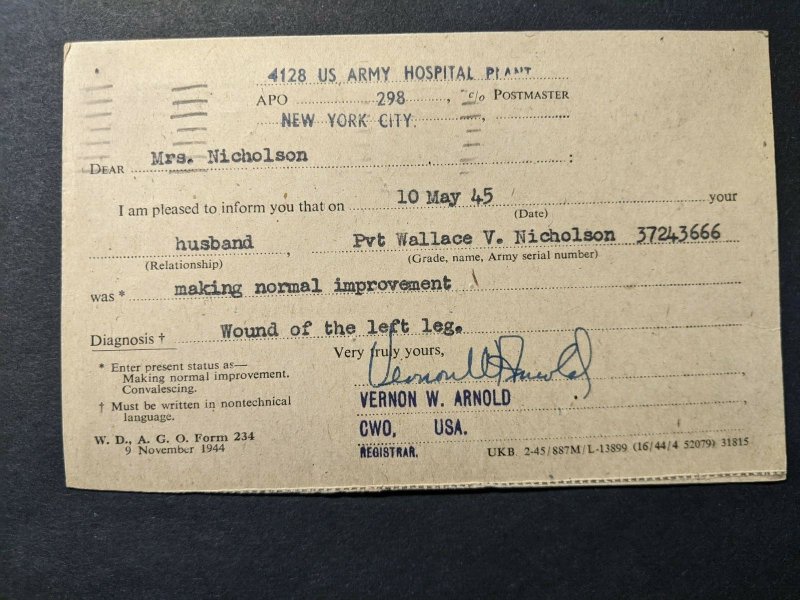 4128 US ARMY HOSPITAL PLANT
APO 298, c/o POSTMASTER
NEW YORK CITY.,
DEAR Mrs. Nicholson :
I am pleased to inform you that on 10 May 45 your
(Date)
husband, Pvt Wallace V. Nicholson 37243666
(Relationship) (Grade, name, Army serial number)
was * making normal improvement
Diagnosis † Wound of the left leg.
Very truly yours,
* Enter present status as—
Making normal improvement.
Convalescing.
† Must be written in nontechnical
language.
Vernon W Arnold
VERNON W. ARNOLD
CWO, USA.
REGISTRAR.
W. D., A. G. O. Form 234
9 November 1944
UKB 2-45/887M/L-13899 (16/44/4 52079) 31815